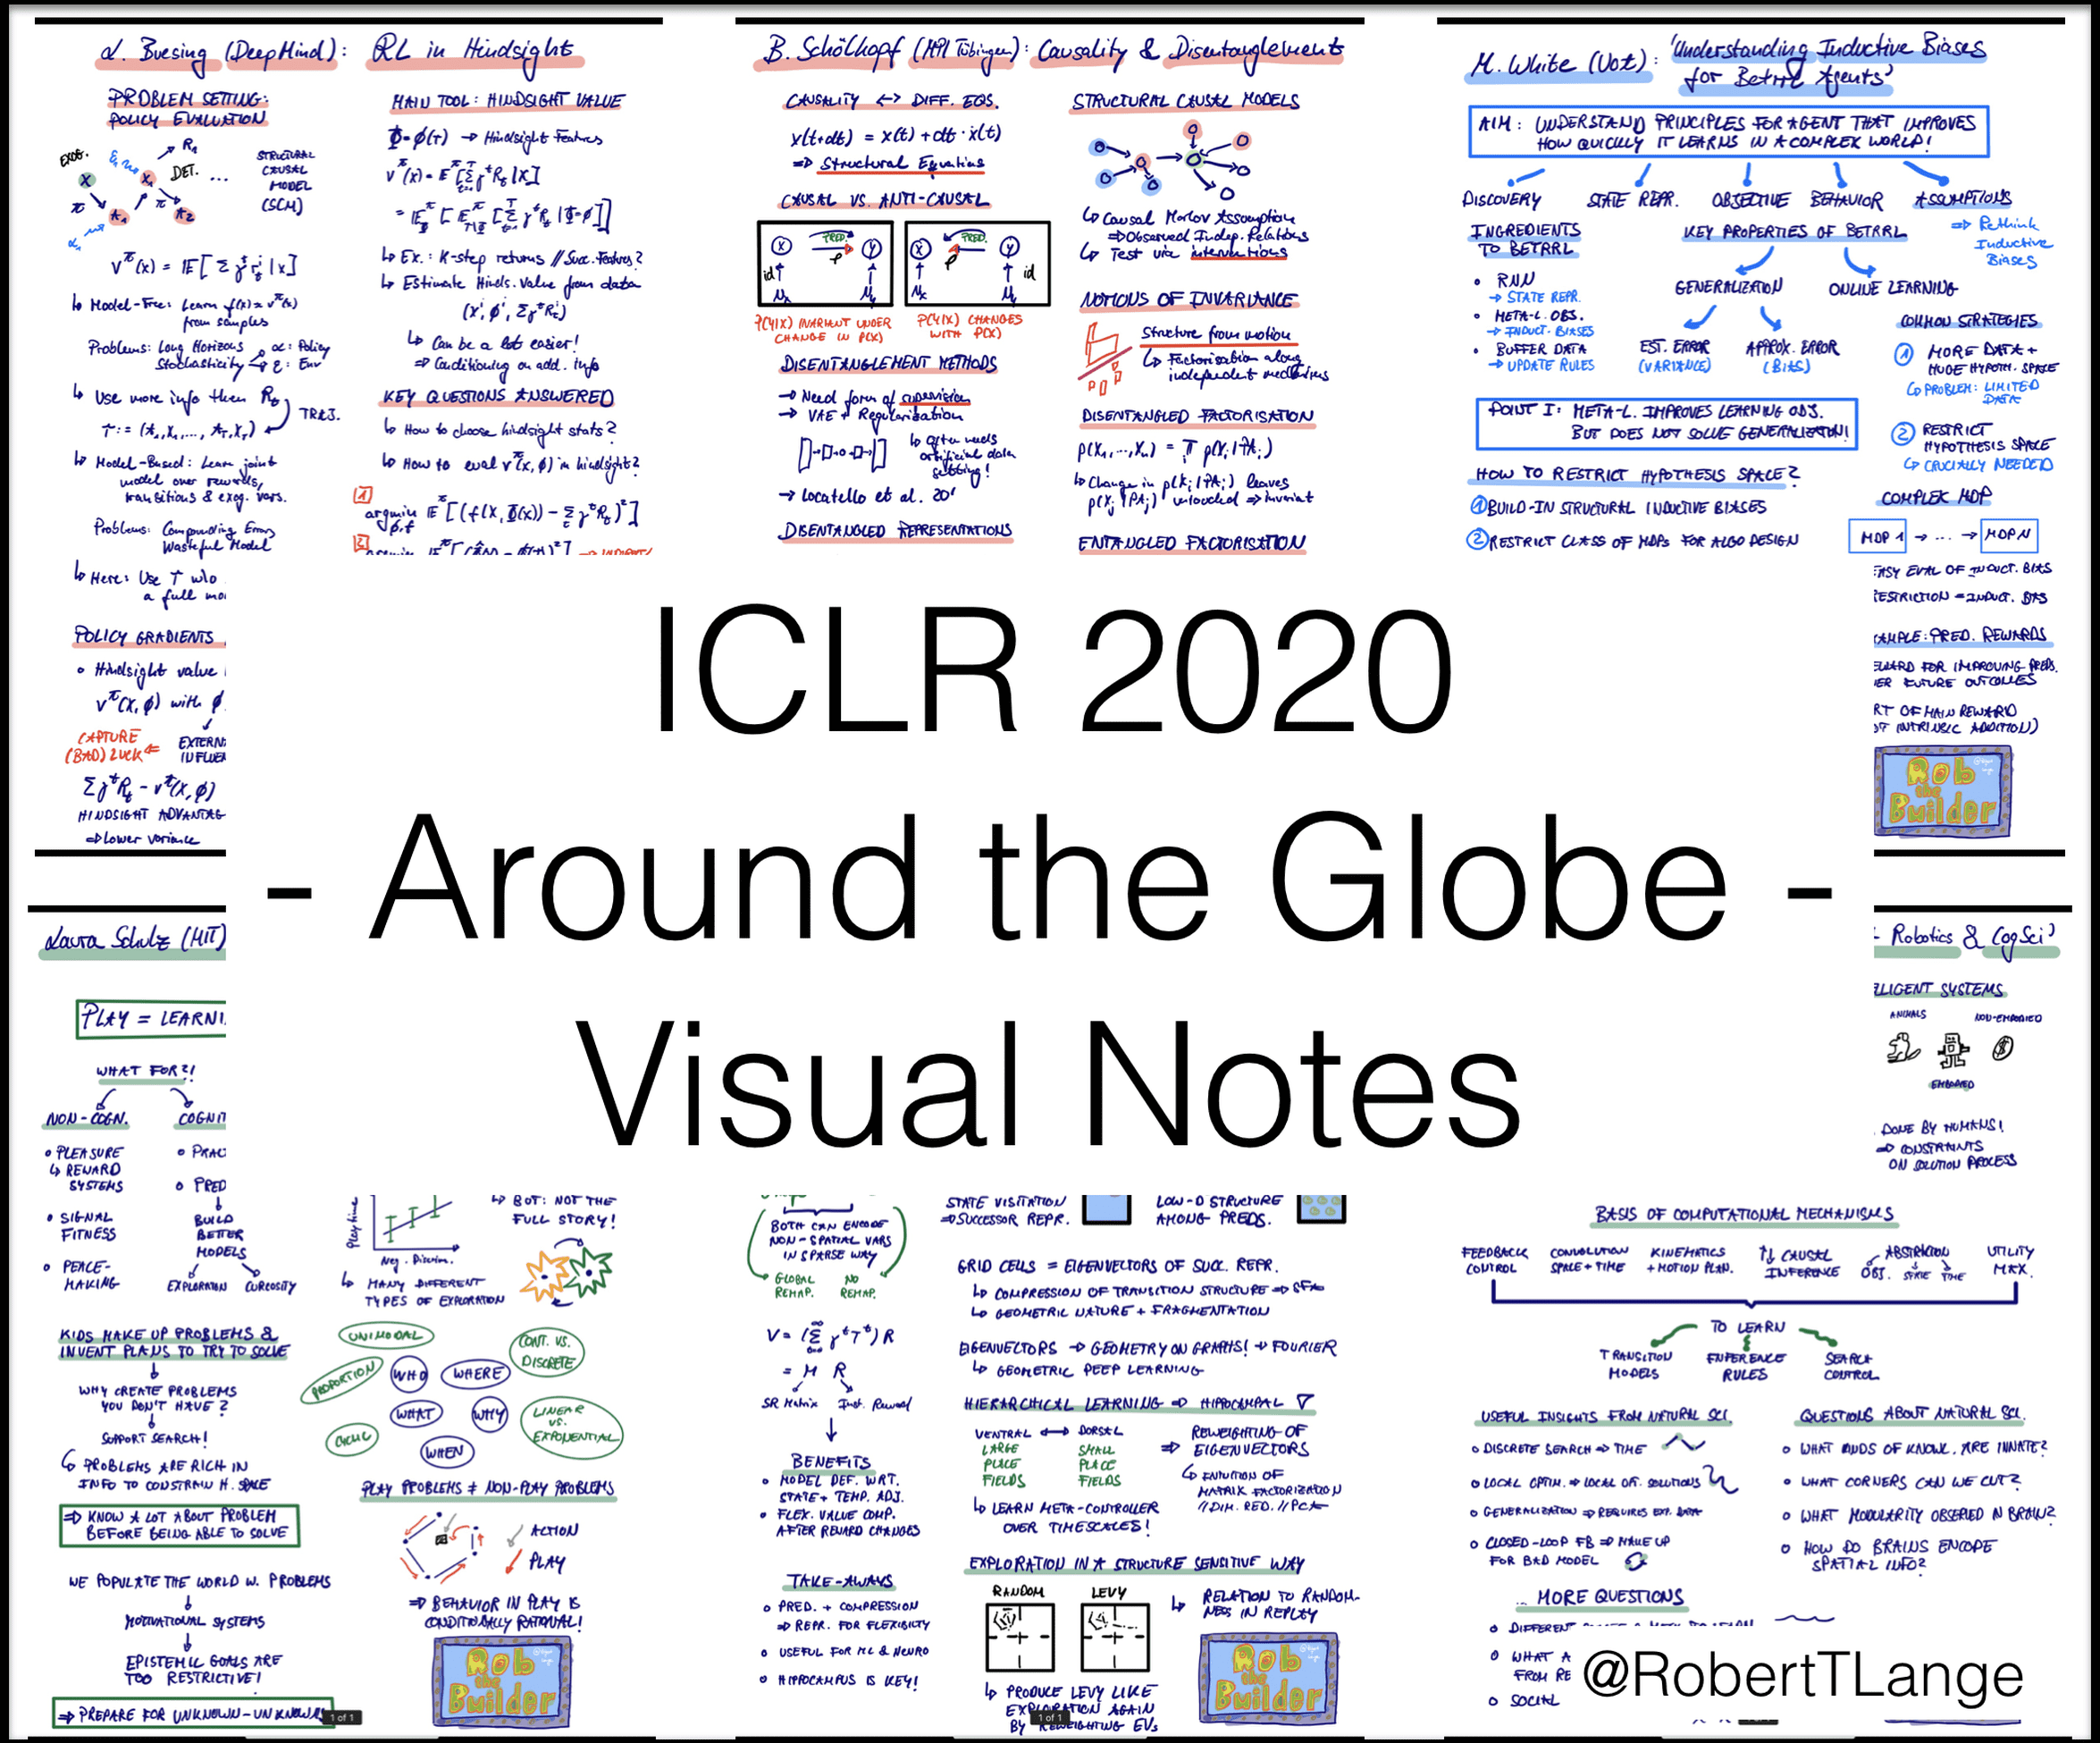 L. Buesing (DeepMind): RL in Hindsight
PROBLEM SETTING:
POLICY EVALUATION
EXOG.
R₁
DET. ...
STRUCTURAL
CAUSAL
MODEL
(SCM)
Model-Free: Learn
from samples
Problems: Long Horizons
Stochasticity
α: Policy
ε: Env
Use more info then Rₜ
TRAJ.
Model-Based: Learn joint
model over rewards,
transitions & exog. vars.
Problems: Compounding Errors
Wasteful Model
Here: Use T w/o
a full mo
POLICY GRADIENTS
Hindsight value
with φ
CAPTURE
(BAD) LUCK
EXTERN
INFLUEN
HINDSIGHT ADVANTAG
⇒ Lower variance
MAIN TOOL: HINDSIGHT VALUE
Φ = φ(τ) → Hindsight Features
Ex.: K-step returns // Succ. Features?
Estimate Hinds. Value from data
Can be a lot easier!
⇒ Conditioning on add. info
KEY QUESTIONS ANSWERED
How to choose hindsight stats?
How to eval vᵗ(x, φ) in hindsight?
1
argmin
2
B. Schölkopf (MPI Tübingen): Causality & Disentanglement
CAUSALITY ↔ DIFF. EQS.
x(t+dt) = x(t) + dt · ẋ(t)
⇒ Structural Equations
CAUSAL VS. ANTI-CAUSAL
X PRED. Y
id
X PRED. Y
id
P(Y|X) INVARIANT UNDER
CHANGE IN P(X)
P(Y|X) CHANGES
WITH P(X)
DISENTANGLEMENT METHODS
→ Need form of supervision
→ VAE + Regularization
Often needs
artificial data
setting!
→ Locatello et al. 20'
DISENTANGLED REPRESENTATIONS
STRUCTURAL CAUSAL MODELS
Causal Markov Assumption
⇒ Observed Indep. Relations
Test via interventions
NOTIONS OF INVARIANCE
Structure from motion
Factorisation along
independent mechanisms
DISENTANGLED FACTORISATION
Change in p(Xᵢ|PAᵢ) leaves
p(Xⱼ|PAⱼ) untouched ⇒ invariant
ENTANGLED FACTORISATION
M. White (UoA): 'Understanding Inductive Biases
for BetRRL Agents'
AIM: UNDERSTAND PRINCIPLES FOR AGENT THAT IMPROVES
HOW QUICKLY IT LEARNS IN A COMPLEX WORLD!
DISCOVERY STATE REPR. OBJECTIVE BEHAVIOR ASSUMPTIONS
⇒ Rethink
Inductive
Biases
INGREDIENTS
TO BETRRL
RNN
→ STATE REPR.
META-L. OBS.
→ INDUCT. BIASES
BUFFER DATA
→ UPDATE RULES
KEY PROPERTIES OF BETRRL
GENERALIZATION ONLINE LEARNING
EST. ERROR
(VARIANCE)
APPROX. ERROR
(BIAS)
COMMON STRATEGIES
1 MORE DATA +
HUGE HYPOTH. SPACE
PROBLEM: LIMITED
DATA
2 RESTRICT
HYPOTHESIS SPACE
CRUCIALLY NEEDED
POINT I: META-L. IMPROVES LEARNING OBJ.
BUT DOES NOT SOLVE GENERALIZATION!
HOW TO RESTRICT HYPOTHESIS SPACE?
1 BUILD-IN STRUCTURAL INDUCTIVE BIASES
2 RESTRICT CLASS OF MDPS FOR ALGO DESIGN
COMPLEX MDP
MDP 1 → ... → MDP N
EASY EVAL OF INDUCT. BIAS
RESTRICTION = INDUCT. BIAS
AMPLE: PRED. REWARDS
EWARD FOR IMPROVING PREDS.
ER FUTURE OUTCOMES
RT OF MAIN REWARD
OT INTRINSIC ADDITION)
Rob
the
Builder
ICLR 2020
- Around the Globe -
Visual Notes
Laura Schulz (MIT)
PLAY = LEARNI
WHAT FOR?!
NON-COGN. COGNIT
PLEASURE
REWARD
SYSTEMS
SIGNAL
FITNESS
PEACE-
MAKING
PRAC
PRED
BUILD
BETTER
MODELS
EXPLORATION CURIOSITY
KIDS MAKE UP PROBLEMS &
INVENT PLANS TO TRY TO SOLVE
WHY CREATE PROBLEMS
YOU DON'T HAVE?
SUPPORT SEARCH!
PROBLEMS ARE RICH IN
INFO TO CONSTRAIN H. SPACE
⇒ KNOW A LOT ABOUT PROBLEM
BEFORE BEING ABLE TO SOLVE
WE POPULATE THE WORLD W. PROBLEMS
MOTIVATIONAL SYSTEMS
EPISTEMIC GOALS ARE
TOO RESTRICTIVE!
⇒ PREPARE FOR UNKNOWN-UNKNOWNS
1 of 1
Playtime
BUT: NOT THE
FULL STORY!
MANY DIFFERENT
TYPES OF EXPLORATION
UNIMODAL
CONT. VS.
DISCRETE
PROPORTION
WHO
WHERE
WHAT
WHY
LINEAR
VS.
EXPONENTIAL
CYCLIC
WHEN
PLAY PROBLEMS ≠ NON-PLAY PROBLEMS
ACTION
PLAY
⇒ BEHAVIOR IN PLAY IS
CONDITIONALLY RATIONAL!
Rob
the
Builder
BOTH CAN ENCODE
NON-SPATIAL VARS
IN SPARSE WAY
GLOBAL
REMAP.
NO
REMAP.
= M R
SR Matrix Inst. Reward
BENEFITS
MODEL DEF. WRT.
STATE + TEMP. ADJ.
FLEX. VALUE COMP.
AFTER REWARD CHANGES
TAKE-AWAYS
PRED. + COMPRESSION
⇒ REPR. FOR FLEXIBILTY
USEFUL FOR ML & NEURO
HIPPOCAMPUS IS KEY!
STATE VISITATION
⇒ SUCCESSOR REPR.
LOW-D STRUCTURE
AMONG PREDS.
GRID CELLS = EIGENVECTORS OF SUCC. REPR.
COMPRESSION OF TRANSITION STRUCTURE ⇒ SFA
GEOMETRIC NATURE + FRAGMENTATION
EIGENVECTORS → GEOMETRY ON GRAPHS! → FOURIER
GEOMETRIC DEEP LEARNING
HIERARCHICAL LEARNING ⇒ HIPPOCAMPAL ∇
VENTRAL ↔ DORSAL
LARGE
PLACE
FIELDS
SMALL
PLACE
FIELDS
⇒ REWEIGHTING OF
EIGENVECTORS
INTUITION OF
MATRIX FACTORIZATION
// DIM. RED. // PCA
LEARN META-CONTROLLER
OVER TIMESCALES!
EXPLORATION IN A STRUCTURE SENSITIVE WAY
RANDOM LEVY
RELATION TO RANDOM-
NESS IN REPLAY
PRODUCE LEVY LIKE
EXPLORATION AGAIN
BY REWEIGHTING EVs
1 of 1
Rob
the
Builder
- Robotics & CogSci'
LLIGENT SYSTEMS
ANIMALS NON-EMBODIED
EMBODIED
DONE BY HUMANS!
⇒ CONSTRAINTS
ON SOLUTION PROCESS
BASIS OF COMPUTATIONAL MECHANISMS
FEEDBACK
CONTROL
CONVOLUTION
SPACE + TIME
KINEMATICS
+ MOTION PLAN.
CAUSAL
INFERENCE
ABSTRACTION
OBJ. STATE TIME
UTILITY
MAX.
TO LEARN
TRANSITION
MODELS
INFERENCE
RULES
SEARCH
CONTROL
USEFUL INSIGHTS FROM NATURAL SCI.
DISCRETE SEARCH ⇒ TIME
LOCAL OPTIM. ⇒ LOCAL OPT. SOLUTIONS
GENERALIZATION ⇒ REQUIRES EXT. DATA
CLOSED-LOOP FB ⇒ MAKE UP
FOR BAD MODEL
QUESTIONS ABOUT NATURAL SCI.
WHAT KINDS OF KNOWL. ARE INNATE?
WHAT CORNERS CAN WE CUT?
WHAT MODULARITY OBSERVED IN BRAIN?
HOW DO BRAINS ENCODE
SPATIAL INFO?
... MORE QUESTIONS
DIFFERENT
WHAT A
FROM RE
SOCIAL
@RobertTLange